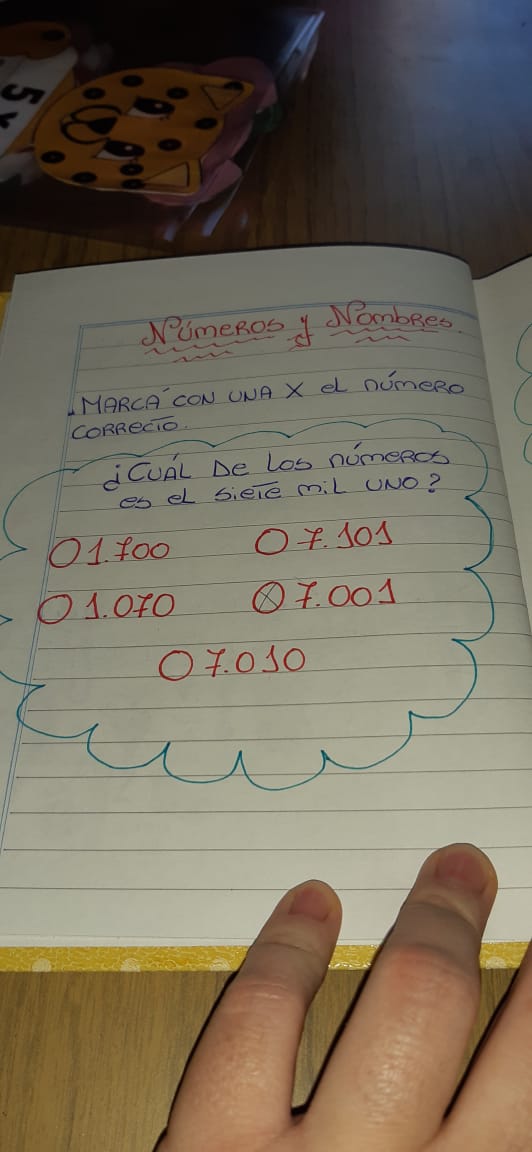 5 x
Números y Nombres.
. MARCÁ CON UNA X el número
CORRECTO.
¿CUÁL De Los números
es el siete mil UNO?
O 1.700 O 7.101
O 1.070 ⓧ 7.001
O 7.010